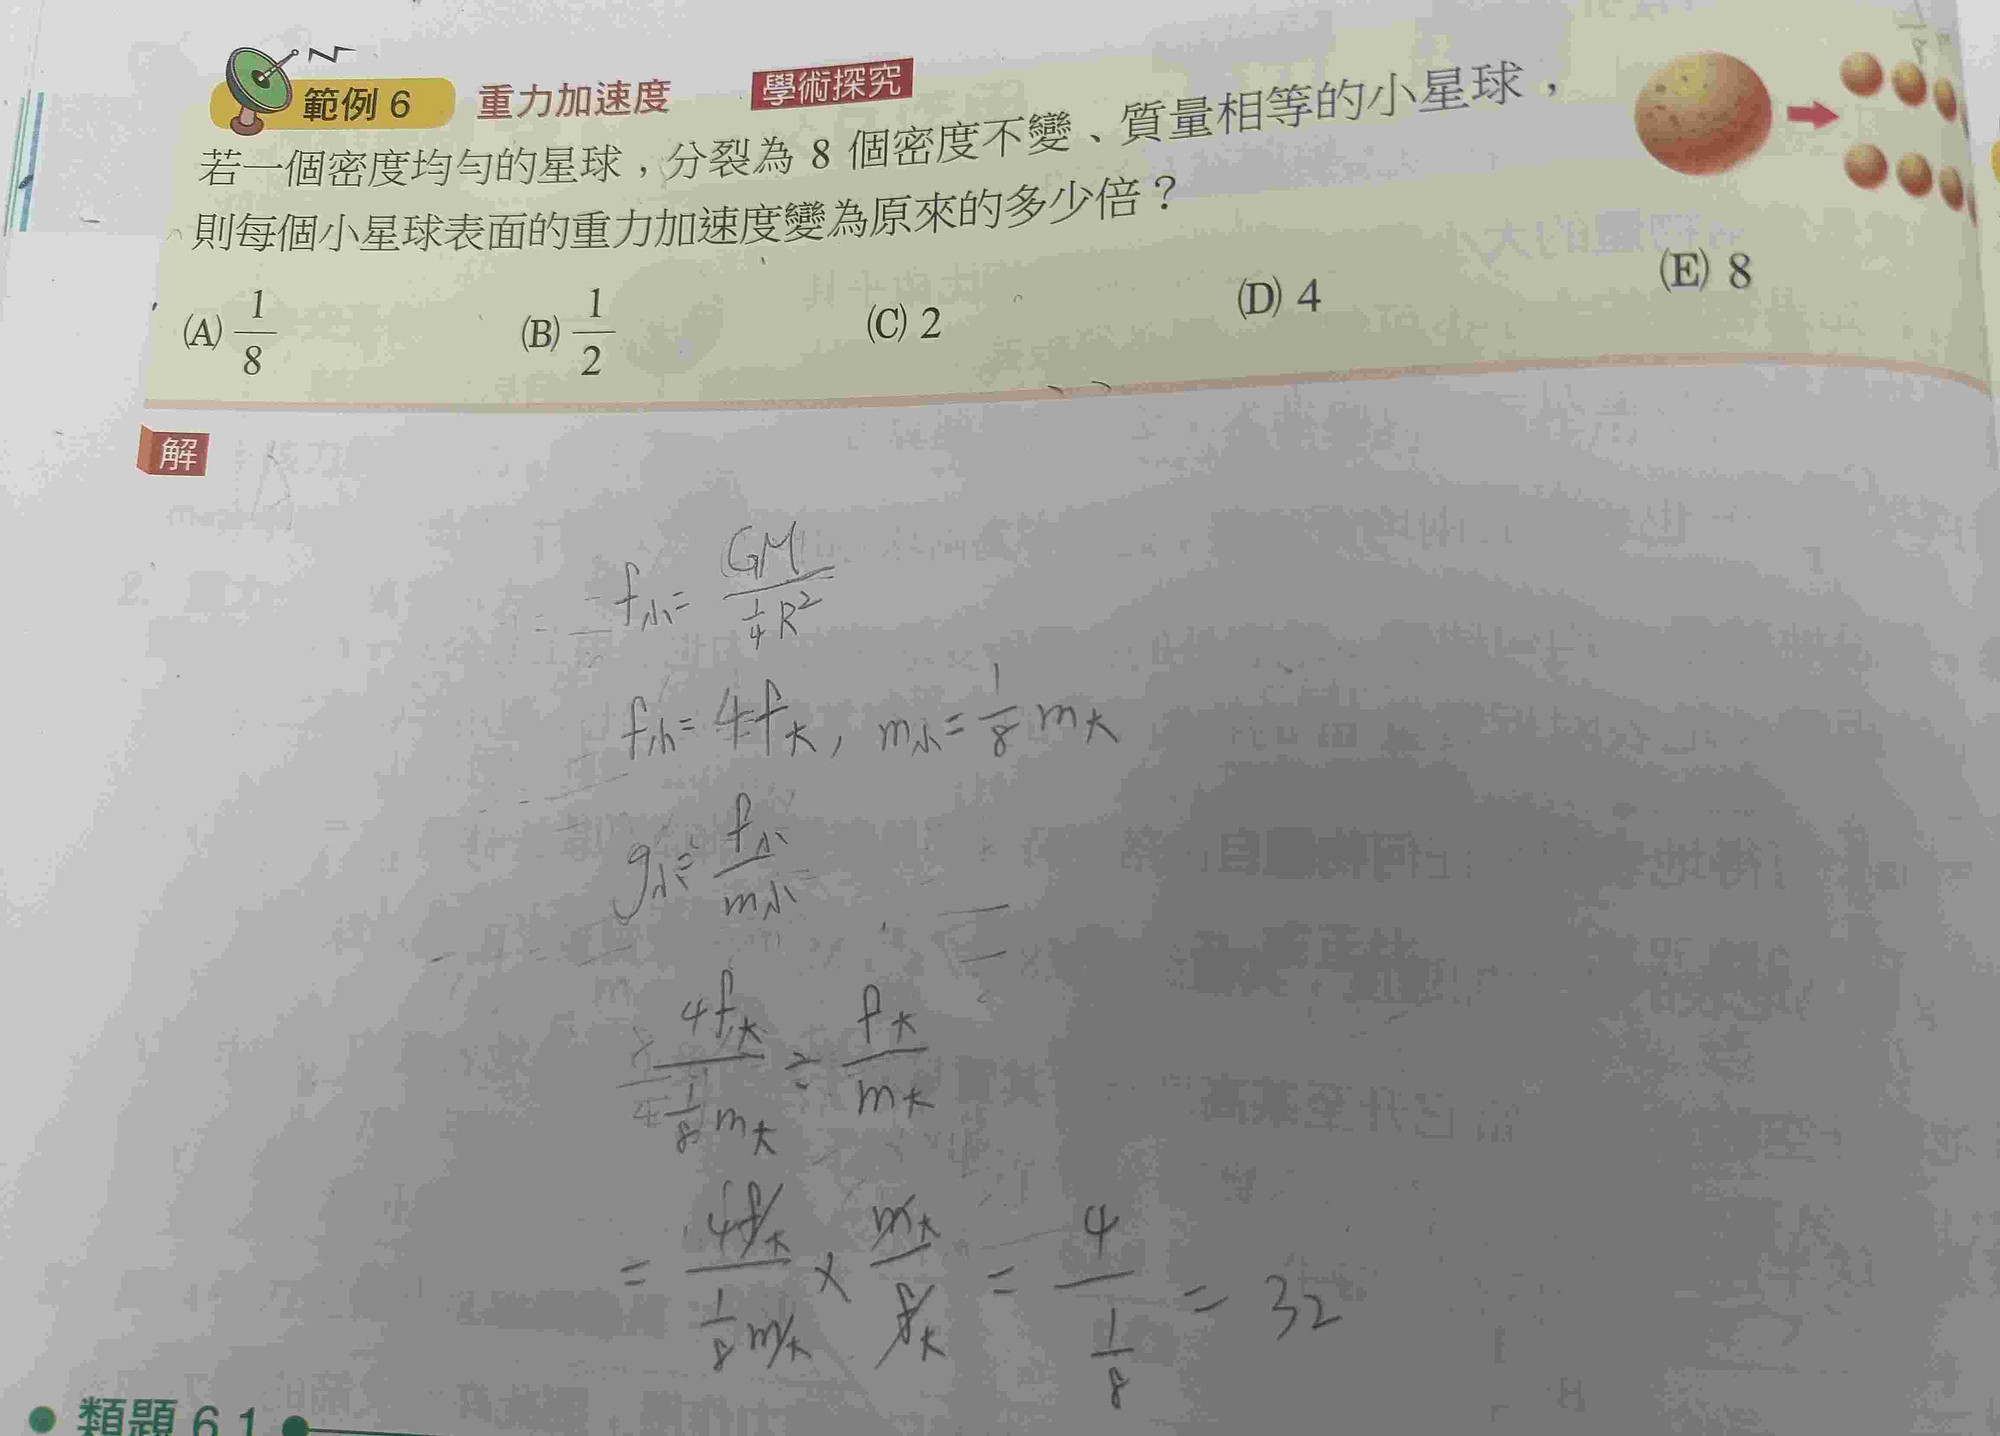 範例 6 重力加速度 學術探究
若一個密度均勻的星球，分裂為 8 個密度不變、質量相等的小星球，
則每個小星球表面的重力加速度變為原來的多少倍？
(A) 1/8 (B) 1/2 (C) 2 (D) 4 (E) 8
解
f小 = GM / (1/4 R²)
f小 = 4f大, m小 = 1/8 m大
g小 = f小 / m小
4f大 / (1/8 m大) ÷ f大 / m大
= 4f大 / (1/8 m大) × m大 / f大 = 4 / (1/8) = 32
類題 6.1